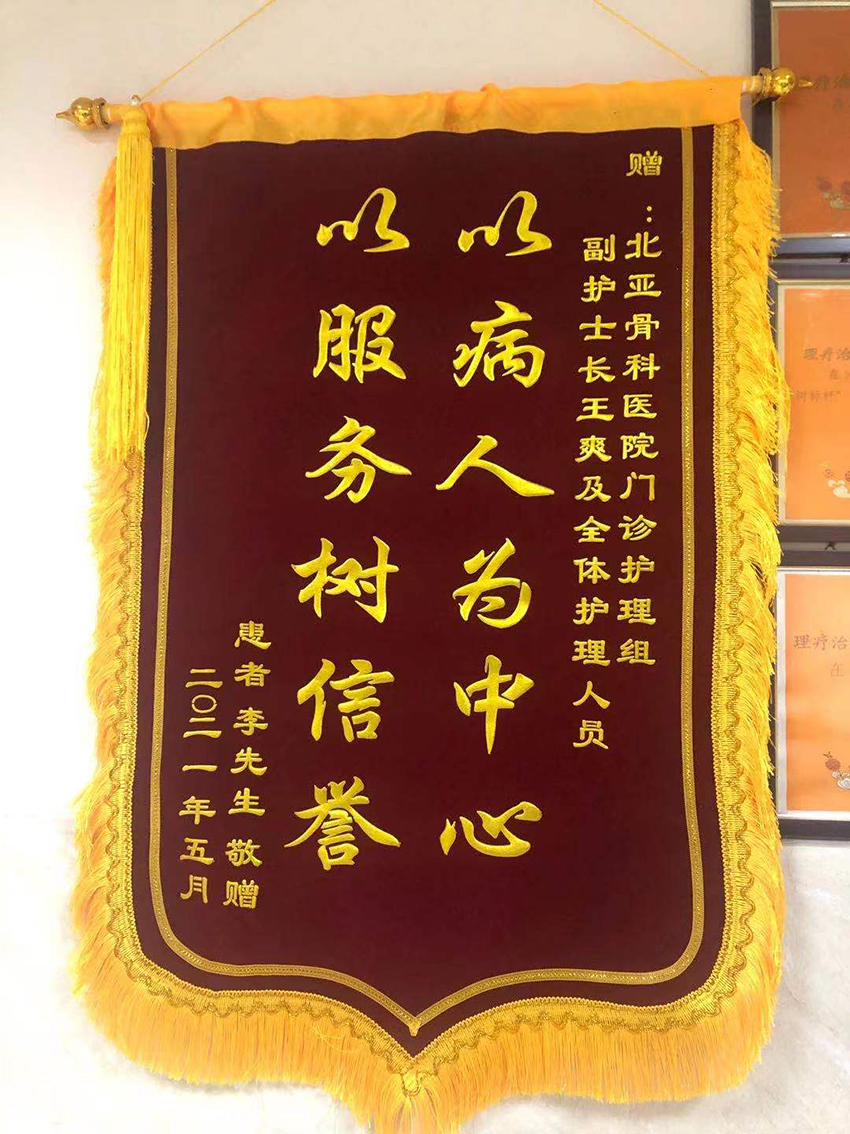 赠：北亚骨科医院门诊护理组
副护士长王爽及全体护理人员
以病人为中心
以服务树信誉
患者 李先生 敬赠
二〇二一年五月
理疗治
理疗治
树标杯"
理疗治
在